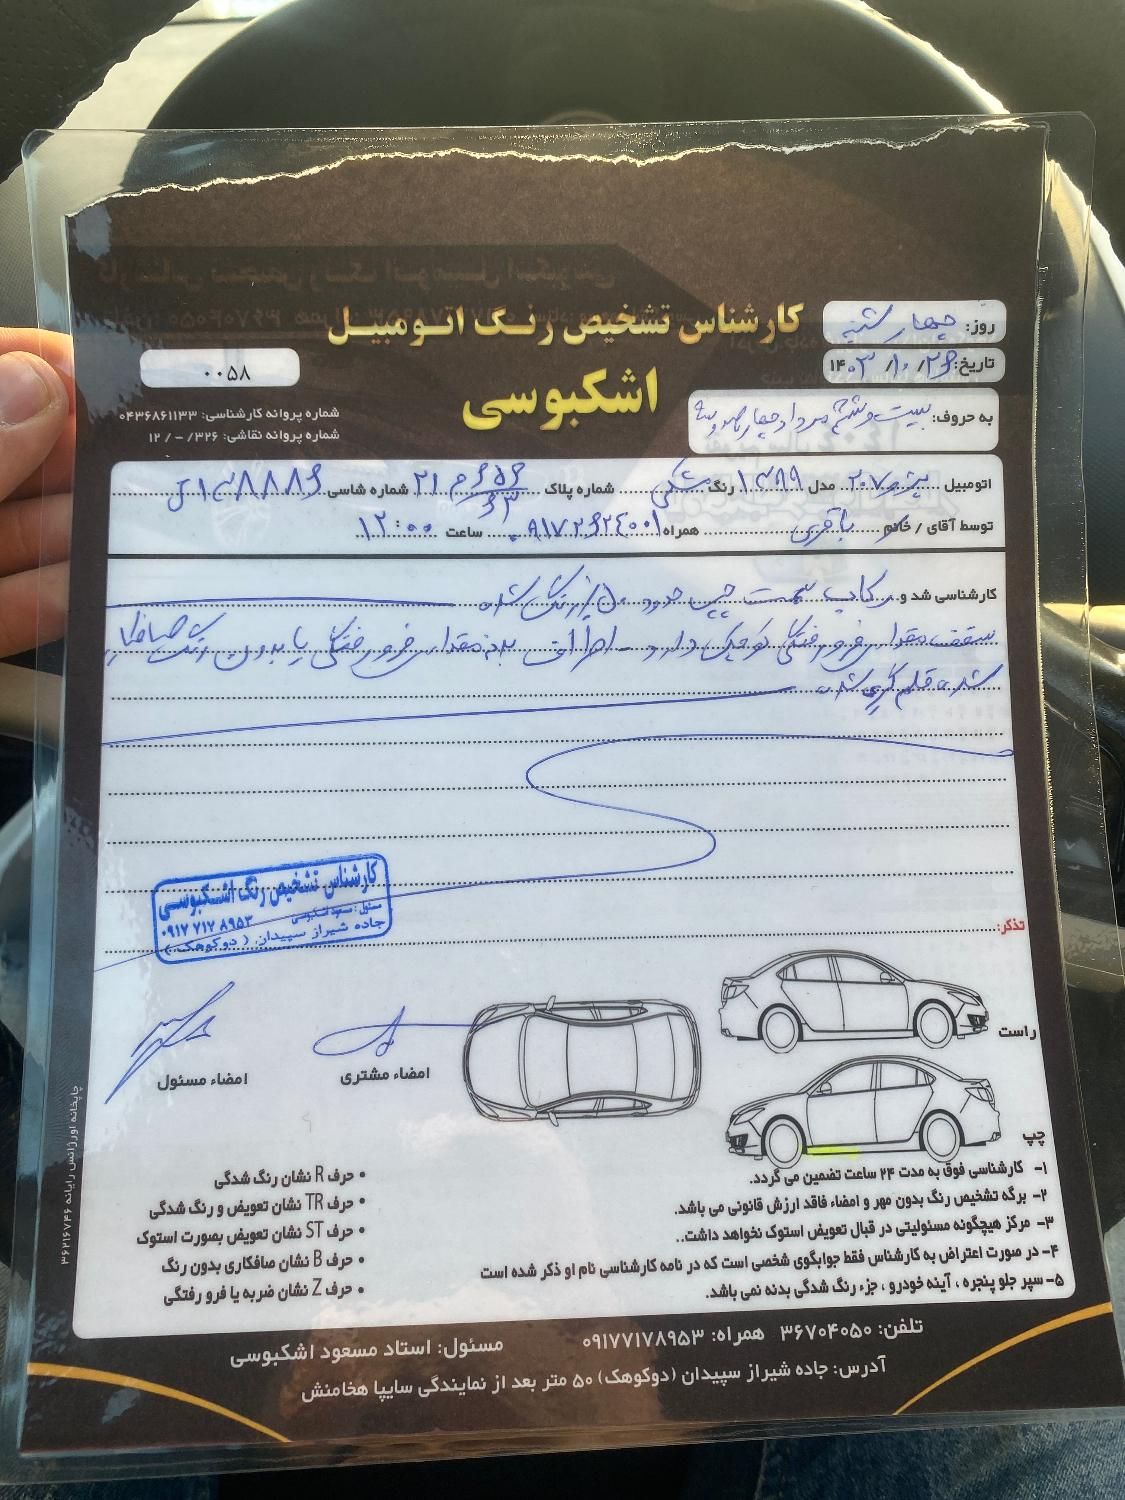 کارشناس تشخیص رنگ اتومبیل
اشکبوسی
روز: چهارشنبه
تاریخ: ۱۴۰۳/۱۰/۲۶
به حروف: بیست و ششم
۰۰۵۸
شماره پروانه کارشناسی: ۰۴۳۶۸۶۱۱۳۳
شماره پروانه نقاشی: ۳۲۶/ – /۱۲
اتومبیل پژو ۲۰۷ مدل ۱۳۹۹ رنگ مشکی شماره پلاک ۲۱ م ۶۵۶ ۶۳ شماره شاسی
توسط آقای / خانم باقری همراه ساعت ۱۲:۰۰
کارشناسی شد و رکاب سمت چپ حدود رنگ شده
سقف مقدار فرورفتگی کوچک دارد - اطراف بدنه مقدار فرورفتگی یا بدون رنگ صافکاری
شده قلم گیری شده
کارشناس تشخیص رنگ اشکبوسی
مسئول: مسعود اشکبوسی
۰۹۱۷ ۷۱۷ ۸۹۵۳
جاده شیراز سپیدان ( دوکوهک )
تذکر:
راست
چپ
امضاء مشتری
امضاء مسئول
۱- کارشناسی فوق به مدت ۲۴ ساعت تضمین می گردد.
۲- برگه تشخیص رنگ بدون مهر و امضاء فاقد ارزش قانونی می باشد.
۳- مرکز هیچگونه مسئولیتی در قبال تعویض استوک نخواهد داشت..
۴- در صورت اعتراض به کارشناس فقط جوابگوی شخصی است که در نامه کارشناسی نام او ذکر شده است
۵- سپر جلو پنجره ، آینه خودرو ، جزء رنگ شدگی بدنه نمی باشد.
• حرف R نشان رنگ شدگی
• حرف TR نشان تعویض و رنگ شدگی
• حرف ST نشان تعویض بصورت استوک
• حرف B نشان صافکاری بدون رنگ
• حرف Z نشان ضربه یا فرو رفتگی
چاپخانه اورژانس رایانه ۳۶۲۱۶۷۴۶
تلفن: ۳۶۷۰۴۰۵۰ همراه: ۰۹۱۷۷۱۷۸۹۵۳ مسئول: استاد مسعود اشکبوسی
آدرس: جاده شیراز سپیدان (دوکوهک) ۵۰ متر بعد از نمایندگی سایپا هخامنش